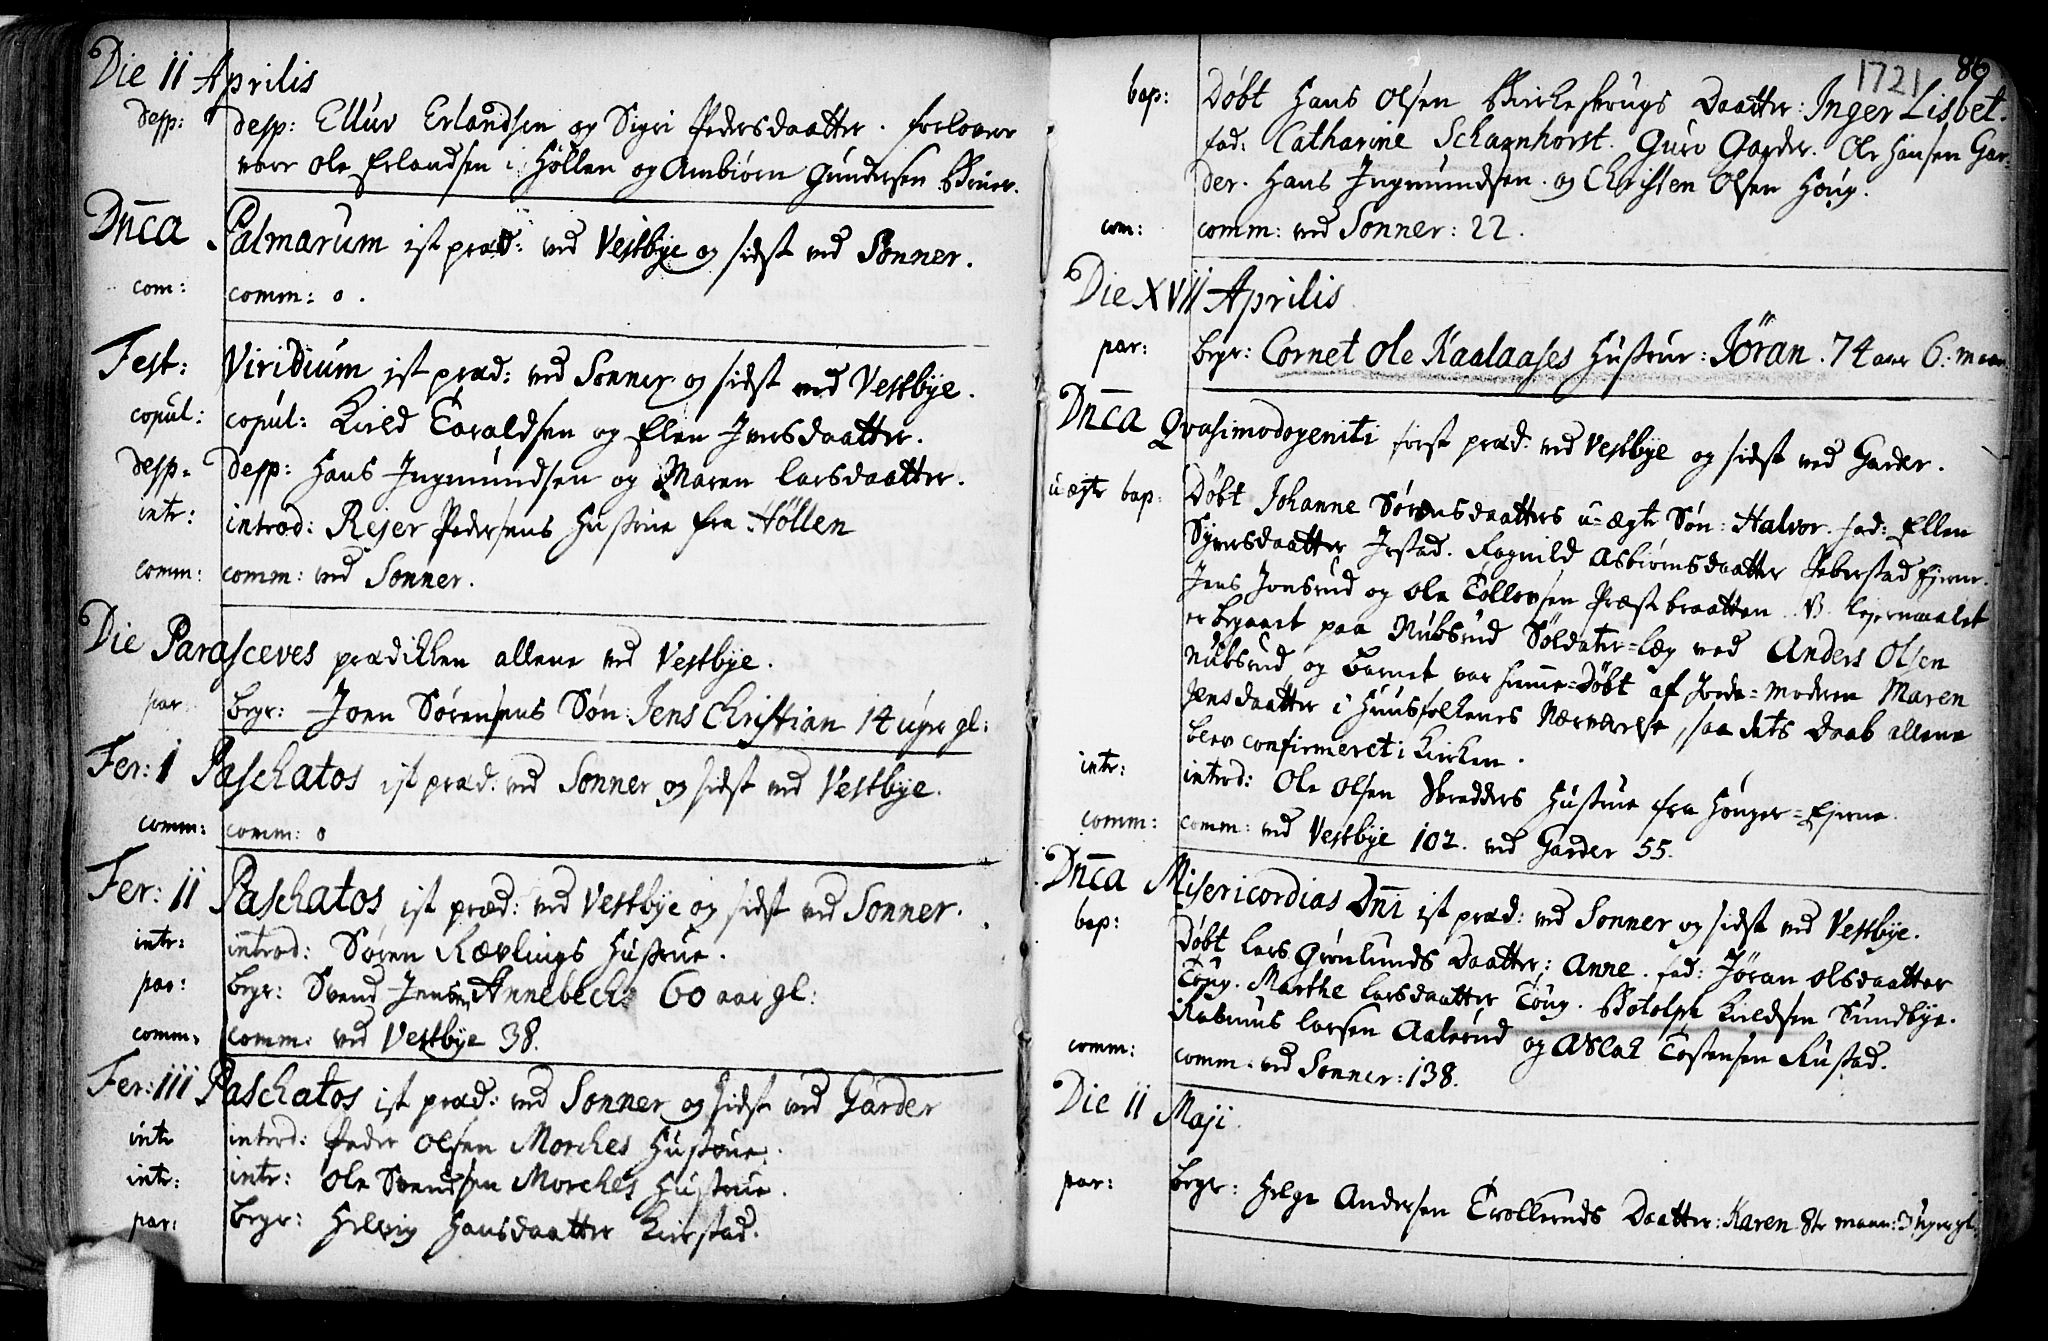 Die 11 Aprilis
desp: desp: Elluv Erlandsen og Sigri Pedersdaatter. forlovere
vare Ole Erlandsen i Höllen og Ambiörn Gundersen
Dn̄ca Palmarum ist præd: ved Vestbye og sidst ved Sonner.
com: comm: 0.
Fest: Viridium ist præd: ved Sonner og sidst ved Vestbye.
copul: copul: Kield Taraldsen og Elen Iversdaatter.
desp: desp: Hans Ingmundsen og Maren Larsdaatter.
intr: introd: Rejer Pedersens Hustrue fra Höllen
comm: comm: ved Sonner.
Die Parasceves prædikken allene ved Vestbye.
par begr: Joen Sörensens Sön: Jens Christian 14 uger gl:
Fer: I Paschatos ist præd: ved Sonner og sidst ved Vestbye.
comm: comm: 0
Fer: II Paschatos ist præd: ved Vestbye og sidst ved Sonner.
intr: introd: Sören Rævlings Hustrue.
par: begr: Svend Jensen Annebechs 60 aar gl:
comm: comm: ved Vestbye 38.
Fer: III Paschatos ist præd: ved Sonner og sidst ved Garder
intr introd: Peder Olsen Morches Hustrue.
intr: intr: Ole Svendsen Morches Hustrue.
par: begr: Helvig Hansdaatter Kirstad.
1721 86
bap: Döbt Hans Olsen Daatter: Inger Lisbet.
fad: Catharine Scharnhorst. Guro Garder. Ole Hansen Gar-
der. Hans Ingmundsen. og Christen Olsen Houg.
com: comm: ved Sonner: 22.
Die XVII Aprilis
par: begr: Cornet Ole Kaalaases Hustrue: Jöran. 74 aar 6. maan
Dn̄ca Qvasimodogeniti först præd: ved Vestbye og sidst ved Garder.
u ægte bap: Döbt Johanne Sörensdaatters u=ægte Sön: Halvor. fad: Ellen
Syversdaatter Irstad. Ragnild Asbiörnsdaatter Peberstad Ejerne.
Jens Jonsrud og Ole Tollovsen Præstbraatten. NB. lejermaalet
er begaaet paa Nubsrud Soldater=læg ved Anders Olsen
Nubsrud og barnet var hiemme=döbt af Jorde=moderen Maren
Jensdaatter i Huusfolkenes Nærværelse, saa dets Daab allene
blev confirmeret i Kirken.
intr: introd: Ole Olsen Skredders Hustrue fra Houger=Ejerne.
comm: comm: ved Vestbye 102. ved Garder 55.
Dn̄ca Misericordias Dn̄i ist præd: ved Sonner og sidst ved Vestbye.
bap: Döbt Lars Grönlunds Daatter: Anne. fad: Jöran Olsdaatter
Toug. Marthe Larsdaatter Toug. Botolph Kieldsen Sundbye.
Rasmus Larsen Aalerud og Aslak Tostensen Rustad.
comm: comm: ved Sonner: 138.
Die II Maji
par: begr: Helge Andersen Trolleruds Daatter: Karen 8te maan: 3 uger gl: